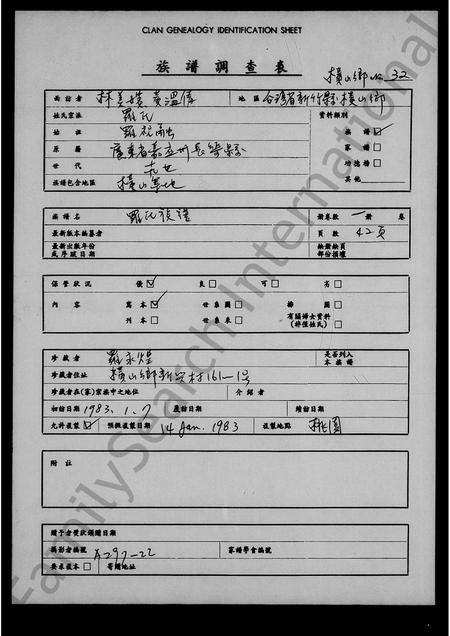 CLAN GENEALOGY IDENTIFICATION SHEET
族譜調查表
橫山鄉 No. 32
面訪者 林美 黃溫 地區 台灣省新竹縣橫山鄉
姓氏宗派 羅氏 資料類別
始祖 羅 族譜 ☑
原籍 廣東省嘉 州長 縣 家譜 □
世代 世 功德榜 □
族譜包含地區 橫山 地 其他
族譜名 羅氏族譜 冊卷數 一冊 卷
最新版本編纂者 頁數 42頁
最新出版年份或序跋日期 缺冊缺頁部份損壞
保管狀況 優 ☑ 良 □ 可 □ 劣 □
內容 寫本 ☑ 世系圖 □ 插圖 □
刊本 □ 世系表 □ 有關婦女資料(詳徑姓氏) □
珍藏者 羅永煌 是否列入本族譜
珍藏者住址 橫山鄉新 村161-1号
珍藏者在(家)宗族中之地位 介紹者
初訪日期 1983. 1. 7 覆訪日期 續訪日期
允許複製 ☑ 預擬複製日期 14 Jan. 1983 複製地點 桃園
附註
贈予者獎狀頒贈日期
攝影者編號 A297-22 家譜學會編號
要求複本 □ 寄贈地址
FamilySearch International